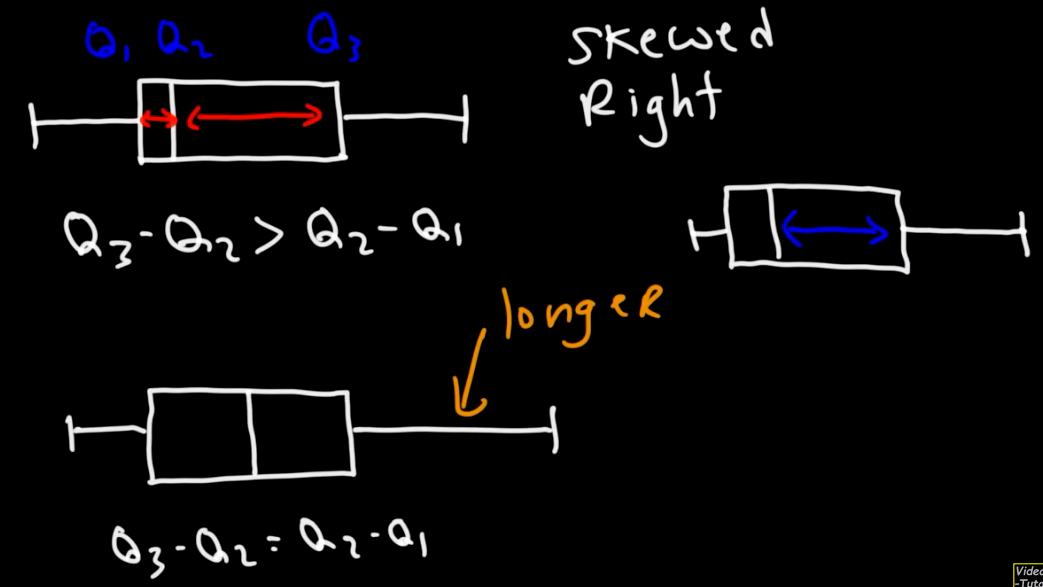 Q₁ Q₂ Q₃
Skewed
Right
Q₃ - Q₂ > Q₂ - Q₁
longer
Q₃ - Q₂ = Q₂ - Q₁
Video
-Tuto